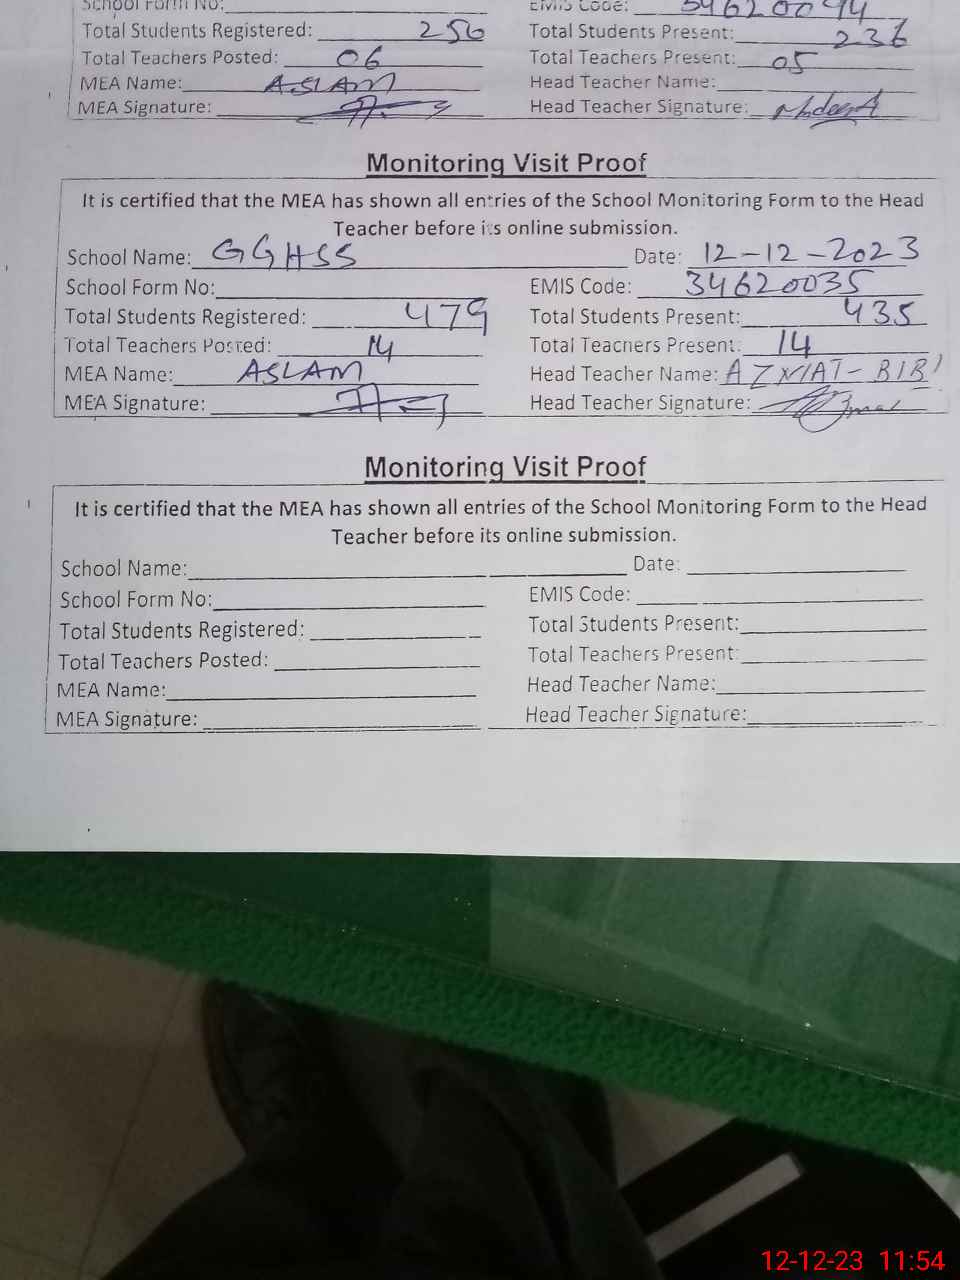 School Form No: EMIS Code: 34620094
Total Students Registered: 256 Total Students Present: 236
Total Teachers Posted: 06 Total Teachers Present: 05
MEA Name: ASLAM Head Teacher Name:
MEA Signature: Head Teacher Signature:
Monitoring Visit Proof
It is certified that the MEA has shown all entries of the School Monitoring Form to the Head
Teacher before its online submission.
School Name: GGHSS Date: 12-12-2023
School Form No: EMIS Code: 34620035
Total Students Registered: 479 Total Students Present: 435
Total Teachers Posted: 14 Total Teachers Present: 14
MEA Name: ASLAM Head Teacher Name: AZMAT-BIBI
MEA Signature: Head Teacher Signature:
Monitoring Visit Proof
It is certified that the MEA has shown all entries of the School Monitoring Form to the Head
Teacher before its online submission.
School Name: Date:
School Form No: EMIS Code:
Total Students Registered: Total Students Present:
Total Teachers Posted: Total Teachers Present:
MEA Name: Head Teacher Name:
MEA Signature: Head Teacher Signature:
12-12-23 11:54